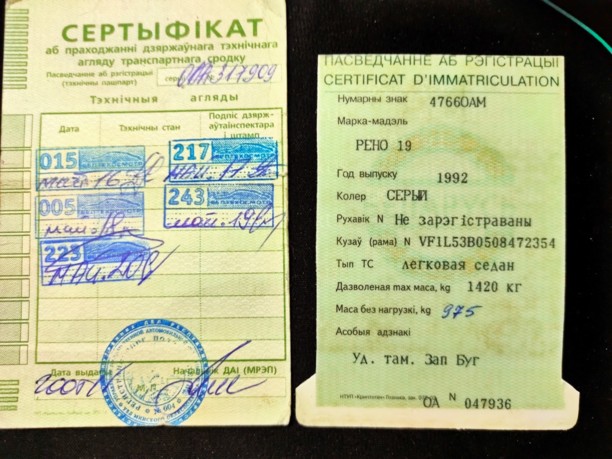 СЕРТЫФІКАТ
аб праходжанні дзяржаўнага тэхнічнага
агляду транспартнага сродку
Пасведчанне аб рэгістрацыі
(тэхнічны пашпарт)
серыя
317909
Тэхнічныя агляды
Дата
Тэхнічны стан
Подпіс дзярж-
аўтаінспектара
і штамп
015
217
май 16
май. 17
005
243
май. 18
май. 19
223
май. 20
Дата выдачы
Начальнік ДАІ (МРЭП)
ПАСВЕДЧАННЕ АБ РЭГІСТРАЦЫІ
CERTIFICAT D'IMMATRICULATION
Нумарны знак 4766ОАМ
Марка-мадэль
РЕНО 19
Год выпуску 1992
Колер СЕРЫЙ
Рухавік N Не зарэгістраваны
Кузаў (рама) N VF1L53B0508472354
Тып ТС легковая седан
Дазволеная max маса, kg 1420 кг
Маса без нагрузкі, kg 975
Асобыя адзнакі
Уд. там. Зап Буг
ОА N 047936